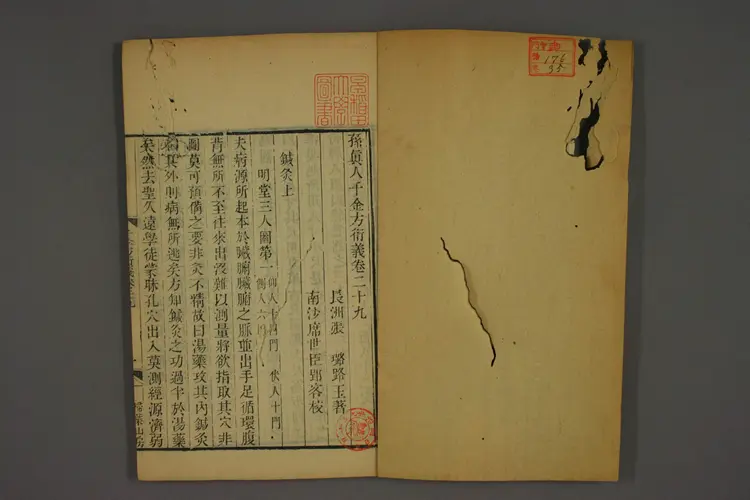 孫眞人千金方衍義卷二十九
長洲張 璐路玉著
南沙席世臣郢客校
鍼灸上
明堂三人圖第一 仰人十四門 伏人十門 側人六門
夫病源所起本於臟腑臟腑之脈並出手足循環腹
背無所不至往來出沒難以測量將欲指取其穴非
圖莫可預備之要非灸不精故曰湯藥攻其內鍼灸
攻其外則病無所逃矣方知鍼灸之功過半於湯藥
矣然去聖久遠學徒蒙昧孔穴出入莫測經源濟弱
卷二十九
一
掃葉山房
早稻田大學圖書